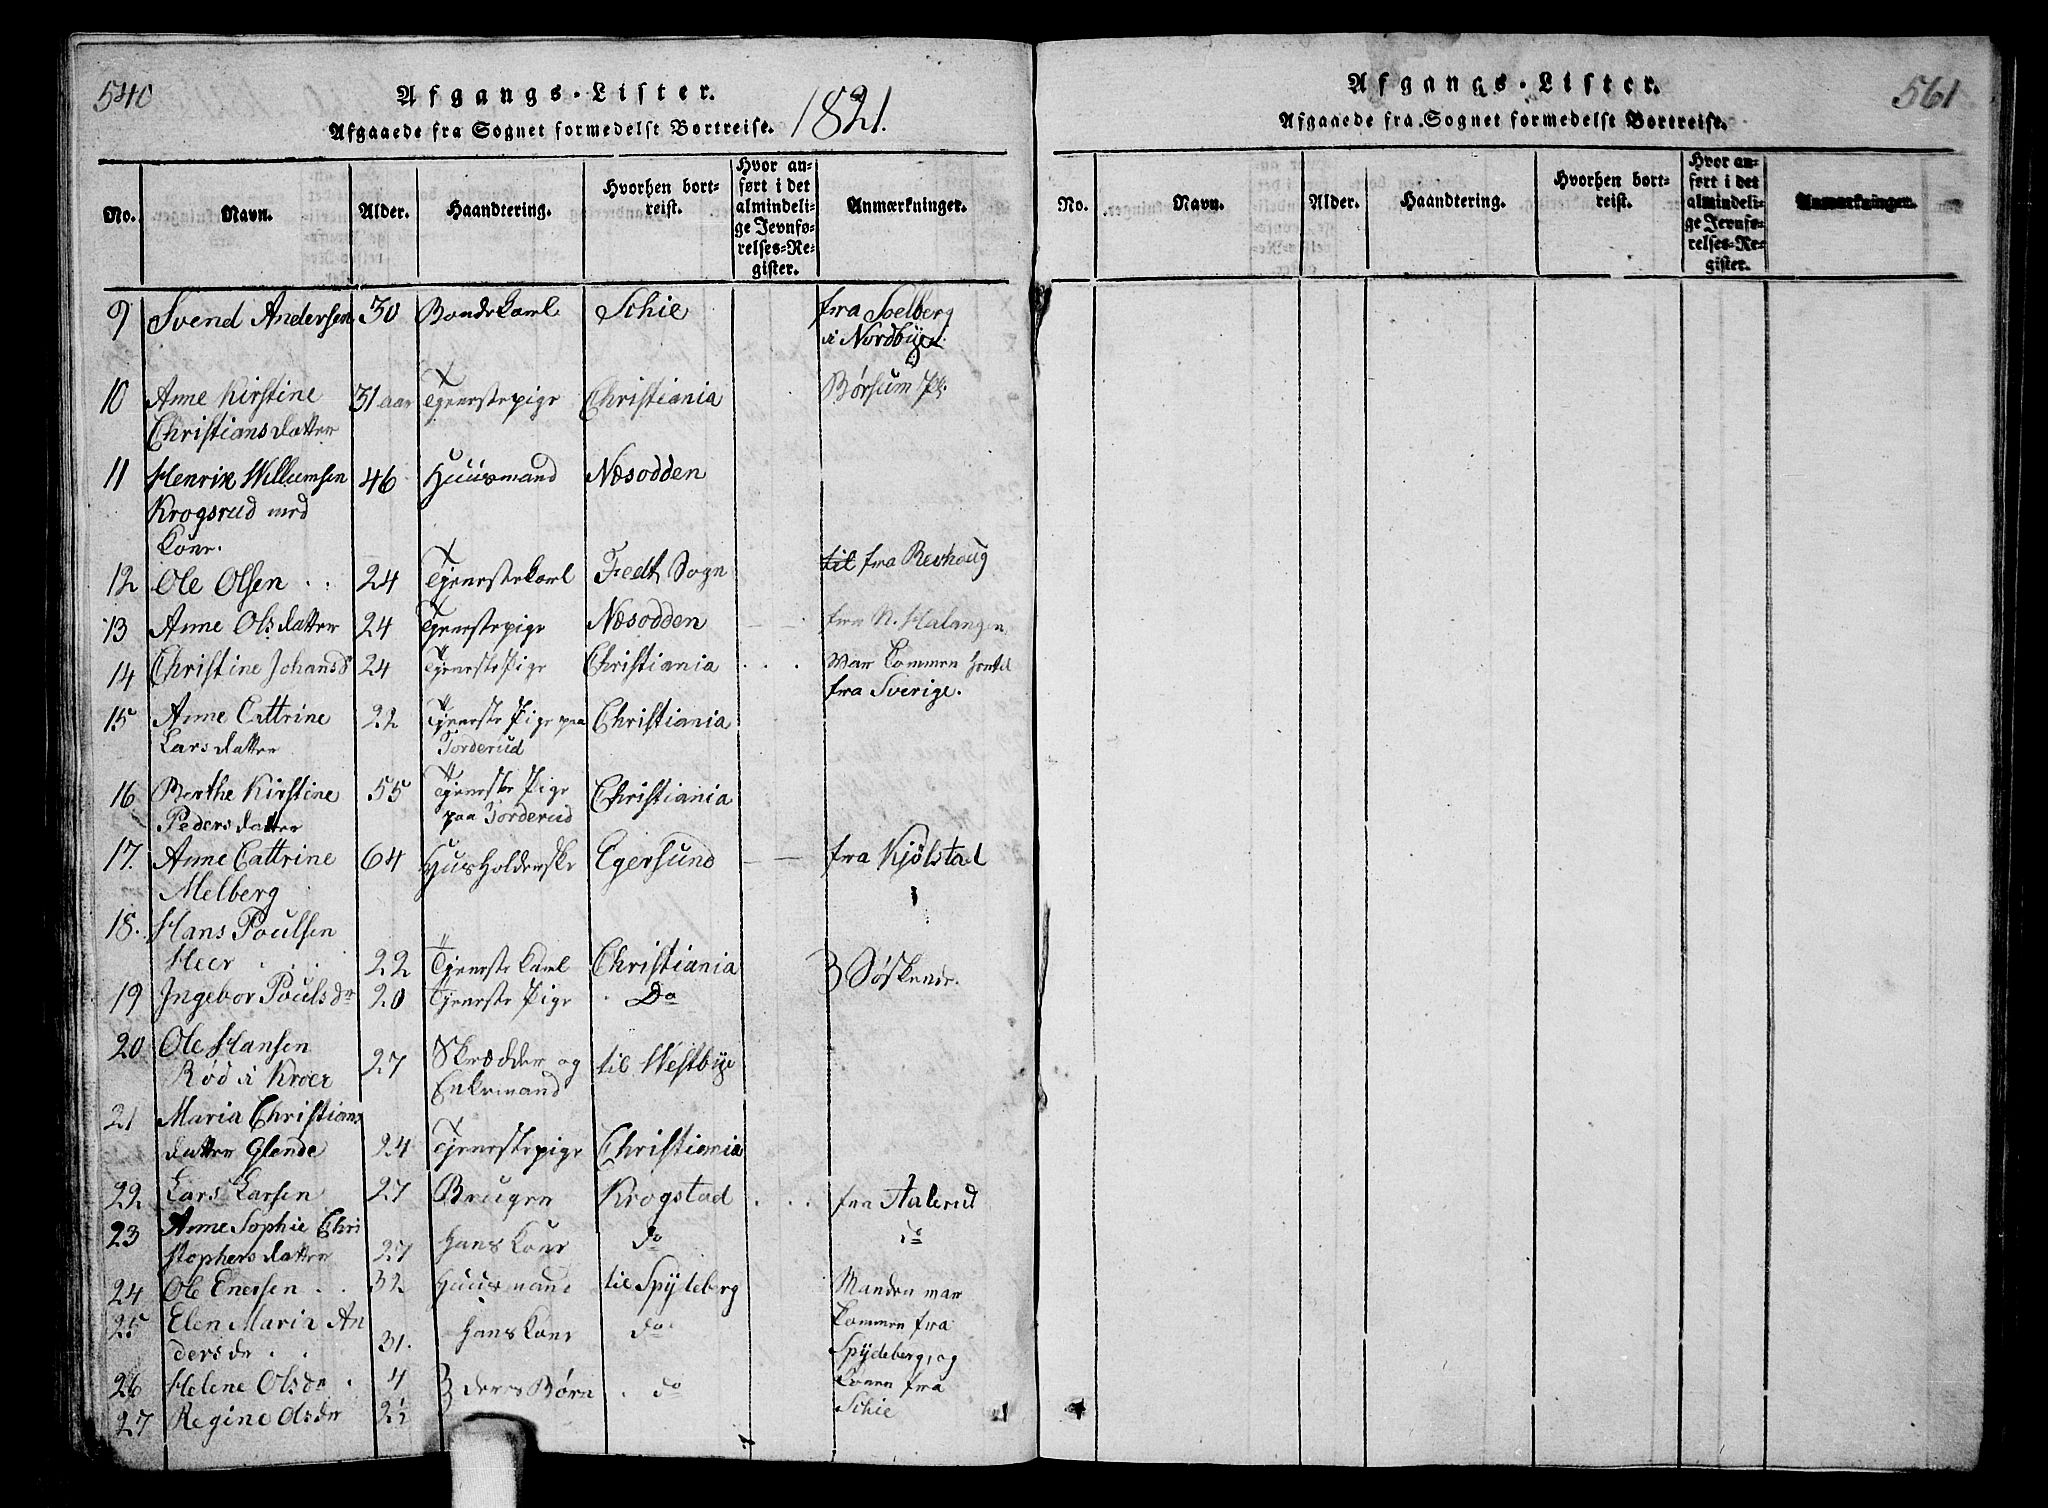 540
Afgangs-Lister.
Afgaaede fra Sognet formedelst Bortreise. 1821.
No. Navn. Alder. Haandtering. Hvorhen bortreist. Hvor anført i det almindelige Jevnførelses-Register. Anmærkninger.
9 Svend Andersen 30 Bondekarl Schie fra Solberg
i Nordbÿe
10 Anne Kirstine 31 aar Tjenestepige Christiania Børsum Pl:
Christiansdatter
11 Henrik Willumsen 46 Huusmand Næsodden
Krogsrud med
Kone.
12 Ole Olsen . . 24 Tjenestekarl Fedt Sogn til fra Revhoug
13 Anne Olsdatter 24 Tjenestepige Næsodden fra N. Halangen
14 Christine Johansdr 24 TjenestePige Christiania . . . War kommen hertil
fra Sverige.
15 Anne Cattrine 22 Tjeneste Pige paa Christiania
Larsdatter Torderud
16 Berthe Kirstine 55 Tjeneste Pige Christiania
Pedersdatter paa Torderud
17. Anne Cattrine 64 Husholderske Egersund fra Kjølstad
Melberg
18. Hans Poulsen
Heer . . . 22 Tjeneste Karl Christiania } Søskende.
19 Ingebor Poulsdr 20 Tjeneste Pige Do
20 Ole Hansen 27 Skrædder og til Westbÿe
Rød i Kroer Enkemand
21 Maria Christians
datter Glende 24 Tjenestepige Christiania
22 Lars Larsen 27 Brugen Krogstad . . . fra Aalerud
23 Anne Sophie Chri
stophersdatter 27 Hans Kone do do
24 Ole Enersen . . 32 Huusmand til Spÿdeberg Manden war
25 Elen Maria An kommen fra
dersdr . . 31. Hans Kone do Spÿdeberg, og
26 Helene Olsdr . 4 } deres Børn . do Konen fra
27 Regine Olsdr 2½ Schie
561
Afgangs-Lister.
Afgaaede fra Sognet formedelst Bortreise.
No. Navn. Alder. Haandtering. Hvorhen bortreist. Hvor anført i det almindelige Jevnførelses-Register. Anmærkninger.